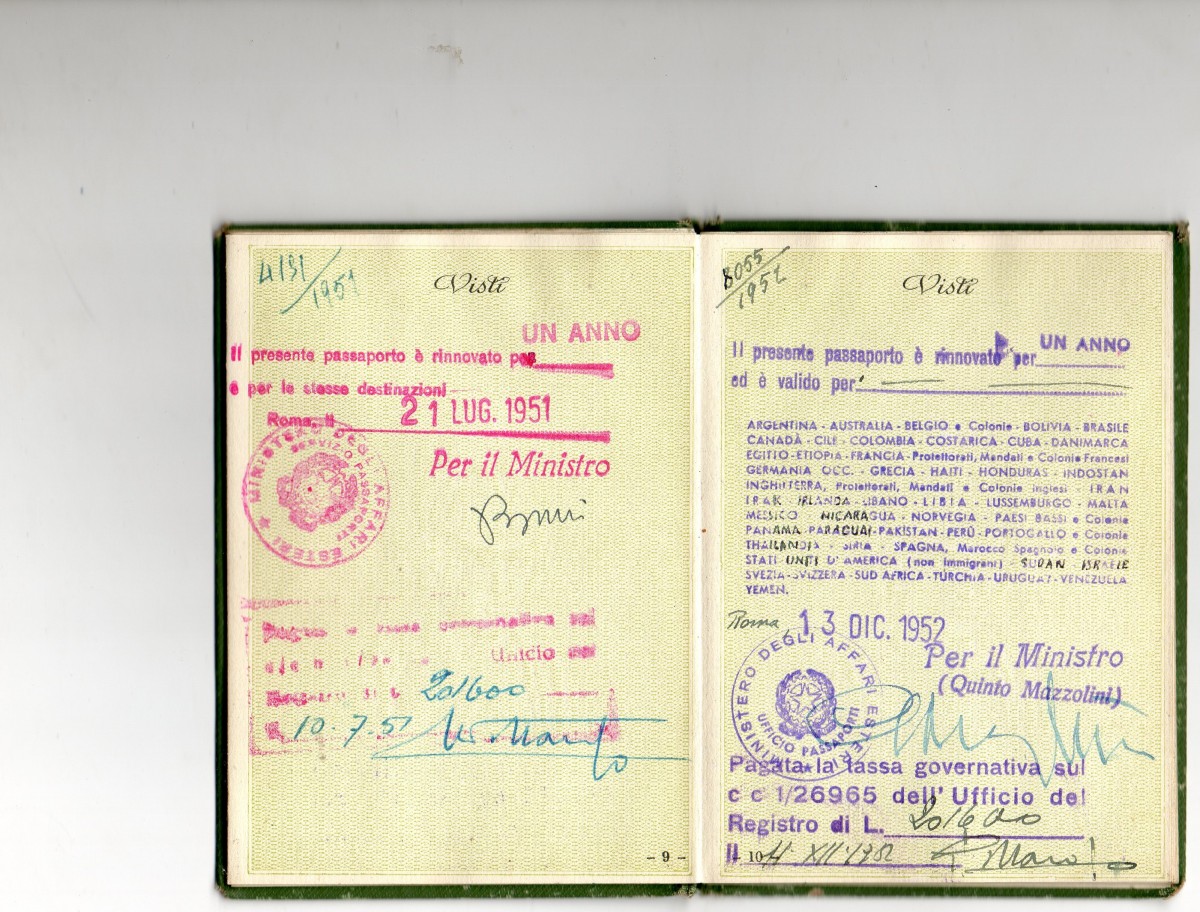 4131/1951
Visti
UN ANNO
Il presente passaporto è rinnovato per
e per le stesse destinazioni
Roma, il 21 LUG. 1951
MINISTERO DEGLI AFFARI ESTERI
SERVIZIO PASSAPORTI
Per il Ministro
governativa sul
Ufficio del
20/600
10-7-51
- 9 -
8055/1952
Visti
UN ANNO
Il presente passaporto è rinnovato per
ed è valido per
ARGENTINA - AUSTRALIA - BELGIO e Colonie - BOLIVIA - BRASILE
CANADÀ - CILE - COLOMBIA - COSTARICA - CUBA - DANIMARCA
EGITTO - ETIOPIA - FRANCIA - Protettorati, Mandati e Colonie Francesi
GERMANIA OCC. - GRECIA - HAITI - HONDURAS - INDOSTAN
INGHILTERRA, Protettorati, Mandati e Colonie inglesi - IRAN
IRAK - IRLANDA - LIBANO - LIBIA - LUSSEMBURGO - MALTA
MESSICO - NICARAGUA - NORVEGIA - PAESI BASSI e Colonie
PANAMA - PARAGUAI - PAKISTAN - PERÙ - PORTOGALLO e Colonie
THAILANDIA - SIRIA - SPAGNA, Marocco Spagnolo e Colonie
STATI UNITI D'AMERICA (non immigrani) - SUDAN - ISRAELE
SVEZIA - SVIZZERA - SUD AFRICA - TURCHIA - URUGUAY - VENEZUELA
YEMEN.
Roma, 13 DIC. 1952
MINISTERO DEGLI AFFARI ESTERI
UFFICIO PASSAPORTI
Per il Ministro
(Quinto Mazzolini)
Pagata la tassa governativa sul
c c 1/26965 dell' Ufficio del
Registro di L. 20/600
Il 11 XII 1952
- 10